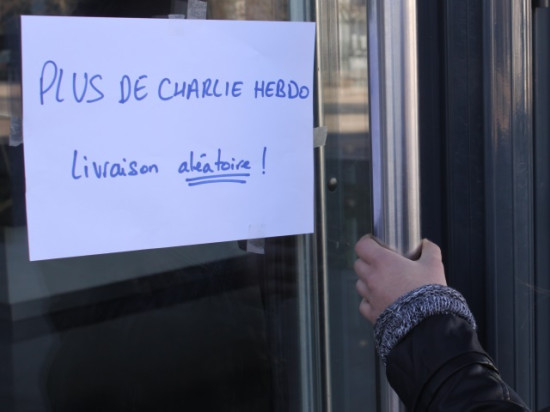 PLUS DE CHARLIE HEBDO
Livraison aléatoire !